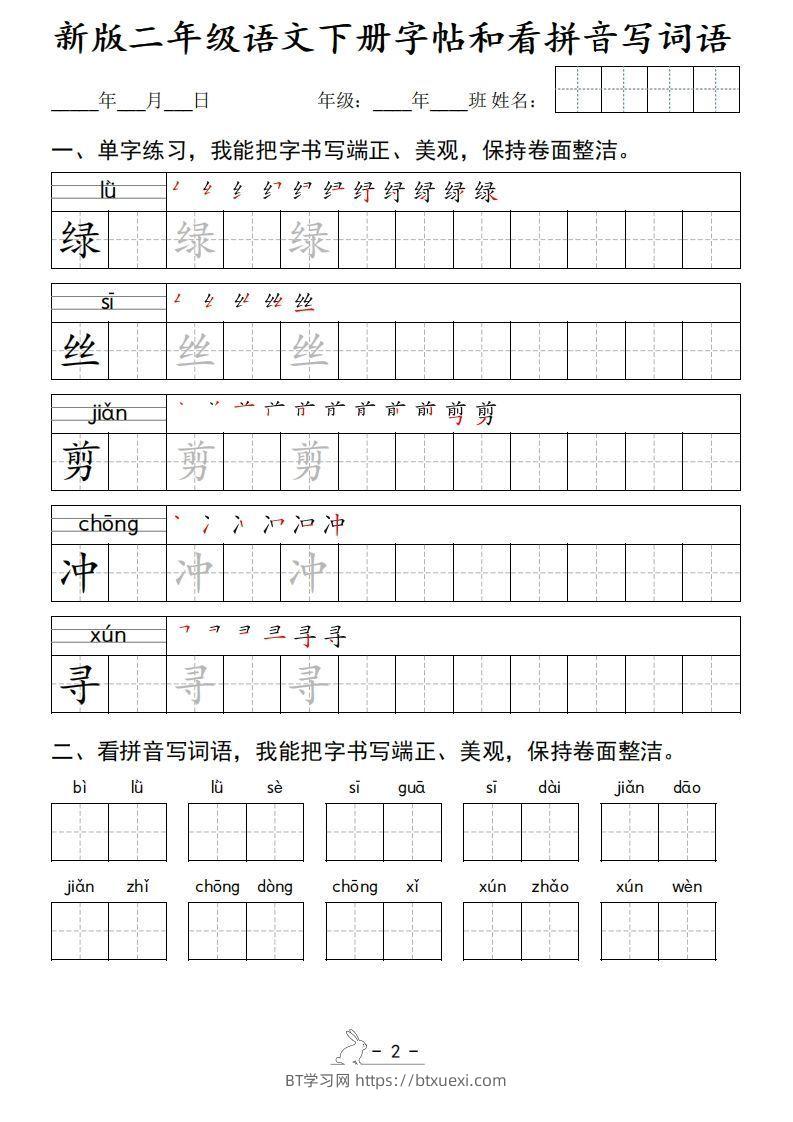 新版二年级语文下册字帖和看拼音写词语
_____年___月___日 年级：____年____班 姓名：
一、单字练习，我能把字书写端正、美观，保持卷面整洁。
lǜ
绿 绿 绿
sī
丝 丝 丝
jiǎn
剪 剪 剪
chōng
冲 冲 冲
xún
寻 寻 寻
二、看拼音写词语，我能把字书写端正、美观，保持卷面整洁。
bì lǜ lǜ sè sī guā sī dài jiǎn dāo
jiǎn zhǐ chōng dòng chōng xǐ xún zhǎo xún wèn
- 2 -
BT学习网 https://btxuexi.com